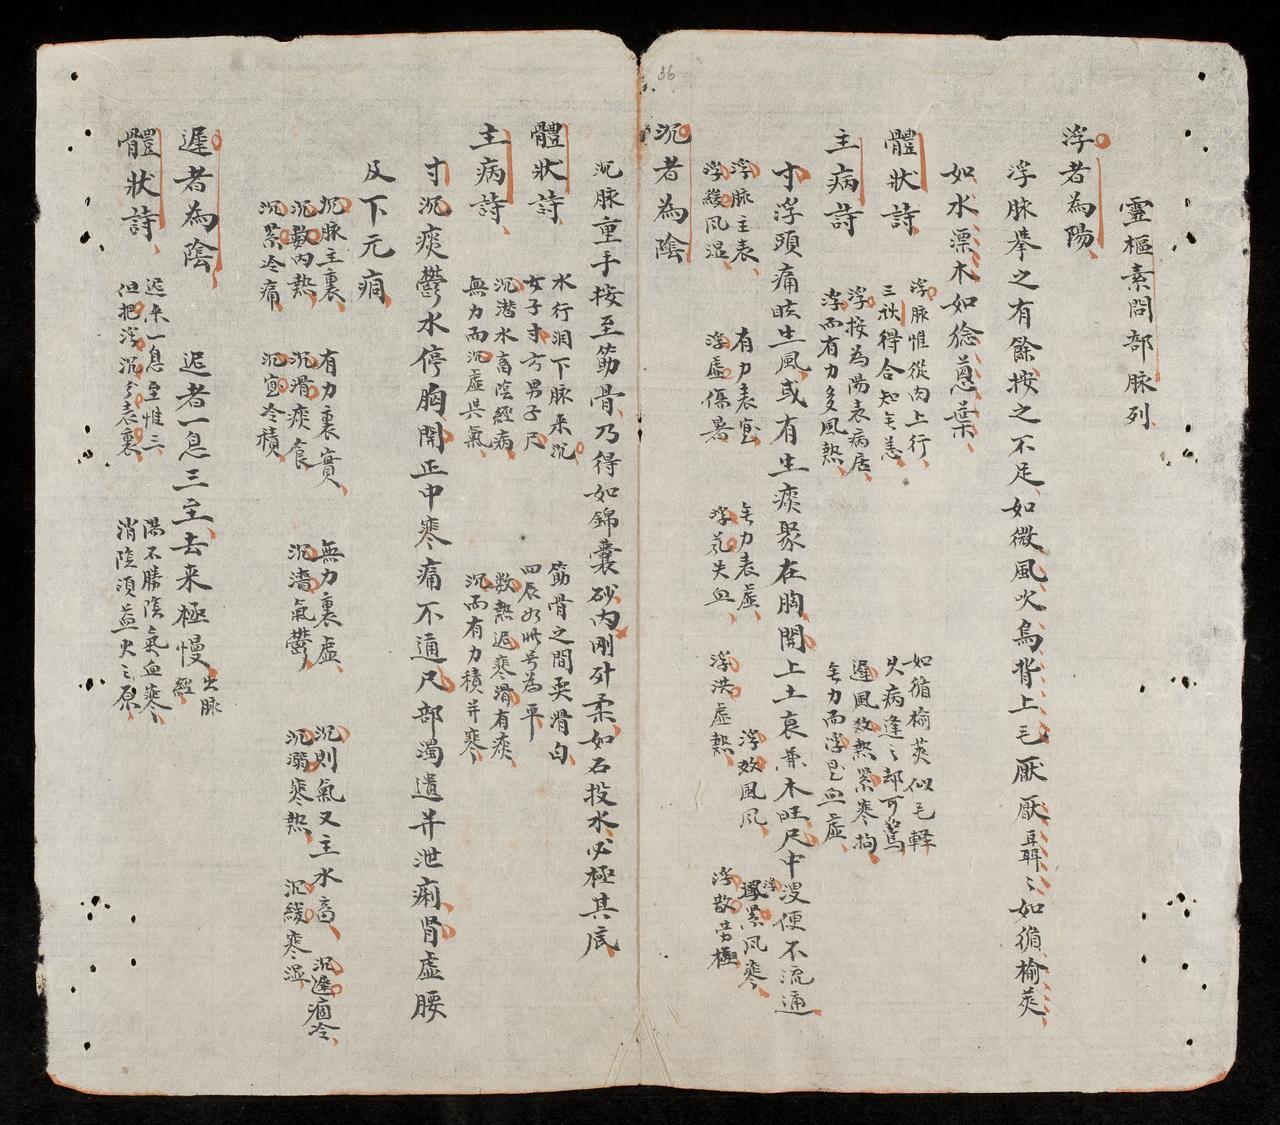 36
靈樞素問部脉列
浮者為陽
浮脉擧之有餘按之不足如微風吹鳥背上毛厭厭聶〻如循榆莢
如水漂木如捻葱葉
體狀詩
浮脉惟從肉上行
如循榆莢似毛輕
三秋得合知無恙
久病逢〻却可驚
主病詩
浮按為陽表病居
遲風数熱緊寒拘
浮而有力多風熱
無力而浮是血虛
寸浮頭痛眩生風或有生痰聚在胸関上土衰兼木旺尺中溲便不流通
浮脉主表
有力表實
無力表虛
浮数風風
浮緊風寒
浮緩風湿
浮虛傷暑
浮芤失血
浮洪虛熱
浮散劳極
沉者為陰
沉脉重手按至筋骨乃得如錦囊砂内剛外柔如石投水必極其底
體狀詩
水行潤下脉来沉
筋骨之間耎滑匀
女子寸方男子尺
四辰如此号為平
主病詩
沉潜水畜陰經病
数熱遲寒滑有痰
無力而沉虛與氣
沉而有力積并寒
寸沉痰鬱水停胸関正中寒痛不通尺部濁遺并泄痢肾虛腰
及下元痌
沉脉主裏
有力裏實
無力裏虛
沉則氣又主水畜
沉遲痼冷
沉数内熱
沉滑痰食
沉濇氣鬱
沉溺寒熱
沉緩寒湿
沉緊冷痛
沉宲冷積
遲者為陰
迟者一息三至去来極慢
出脉
經
體狀詩
迟来一息至惟三
陽不勝陰氣血寒
但把浮沉分表裏
消陰須益火之原